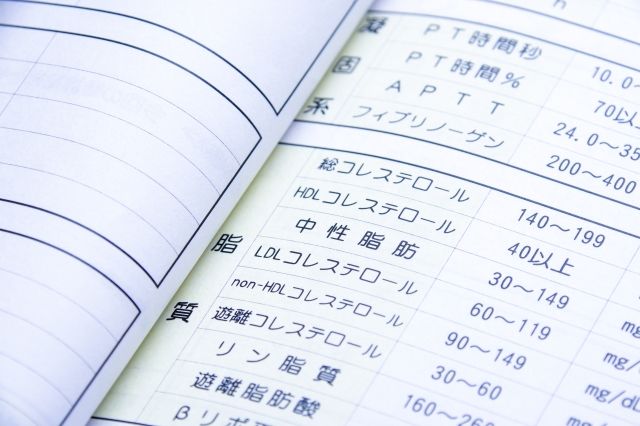 凝固系
PT時間秒 10.0
PT時間% 70以
APTT 24.0～35
フィブリノーゲン 200～400
脂質
総コレステロール 140～199
HDLコレステロール 40以上
中性脂肪 30～149
LDLコレステロール 60～119 mg
non-HDLコレステロール 90～149 mg/
遊離コレステロール 30～60 mg/dL
リン脂質 160～260
遊離脂肪酸
βリポ